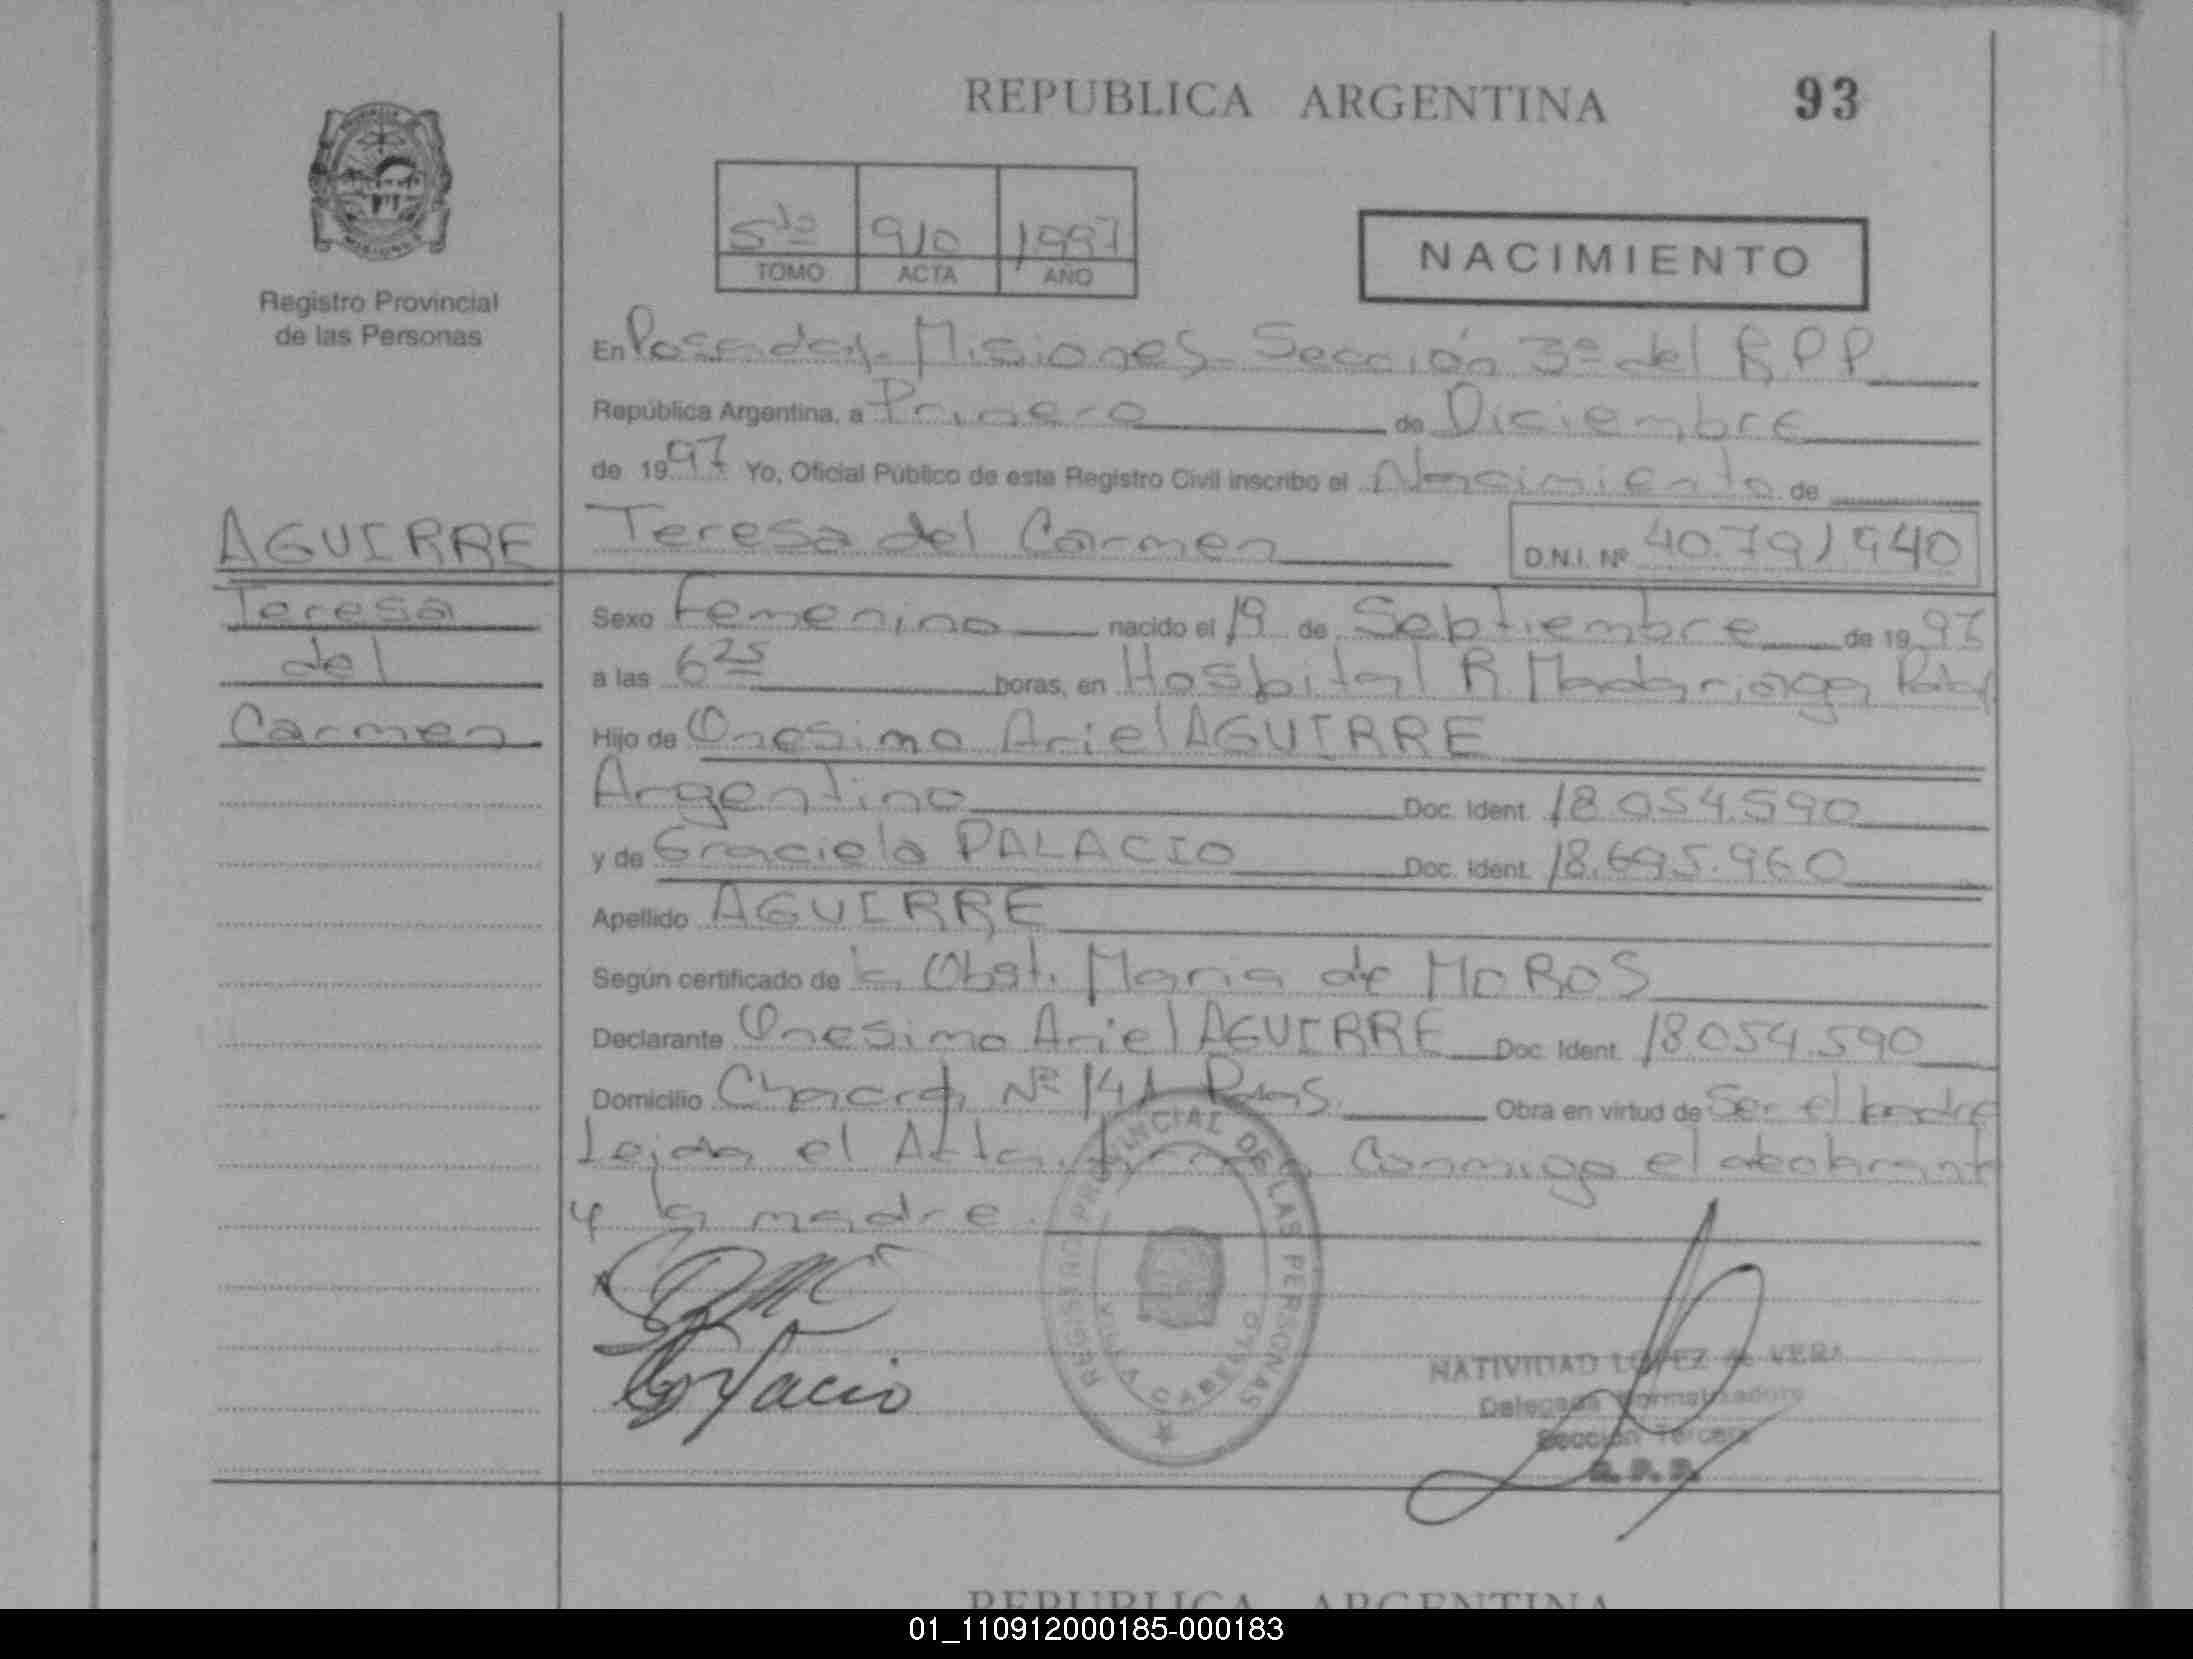 REPUBLICA ARGENTINA
93
Registro Provincial
de las Personas
5to 910 1997
TOMO ACTA AÑO
NACIMIENTO
En Posadas Misiones Sección 3º del R P P
República Argentina, a Primero de Diciembre
de 1997 Yo, Oficial Público de este Registro Civil inscribo el Nacimiento de
AGUIRRE
Teresa
del
Carmen
Teresa del Carmen D.N.I. Nº 40.791940
Sexo Femenino nacido el 19 de Septiembre de 1997
a las 6 25 horas, en Hospital R. Madariaga
Hijo de Onesimo Ariel AGUIRRE
Argentino Doc. Ident. 18.054.590
y de Graciela PALACIO Doc. Ident. 18.695.960
Apellido AGUIRRE
Según certificado de la Obst. Maria de MOROS
Declarante Onesimo Ariel AGUIRRE Doc. Ident. 18.054.590
Domicilio Chacra Nº 141 Pdas. Obra en virtud de Ser el padre
Leida el Acta, conmigo el declarante
y la madre.
REGISTRO PROVINCIAL DE LAS PERSONAS
VILLA CABELLO
NATIVIDAD LOPEZ de VERA
Delegada Normalizadora
Sección Tercera
R. P. P.
REPUBLICA ARGENTINA
01_110912000185-000183